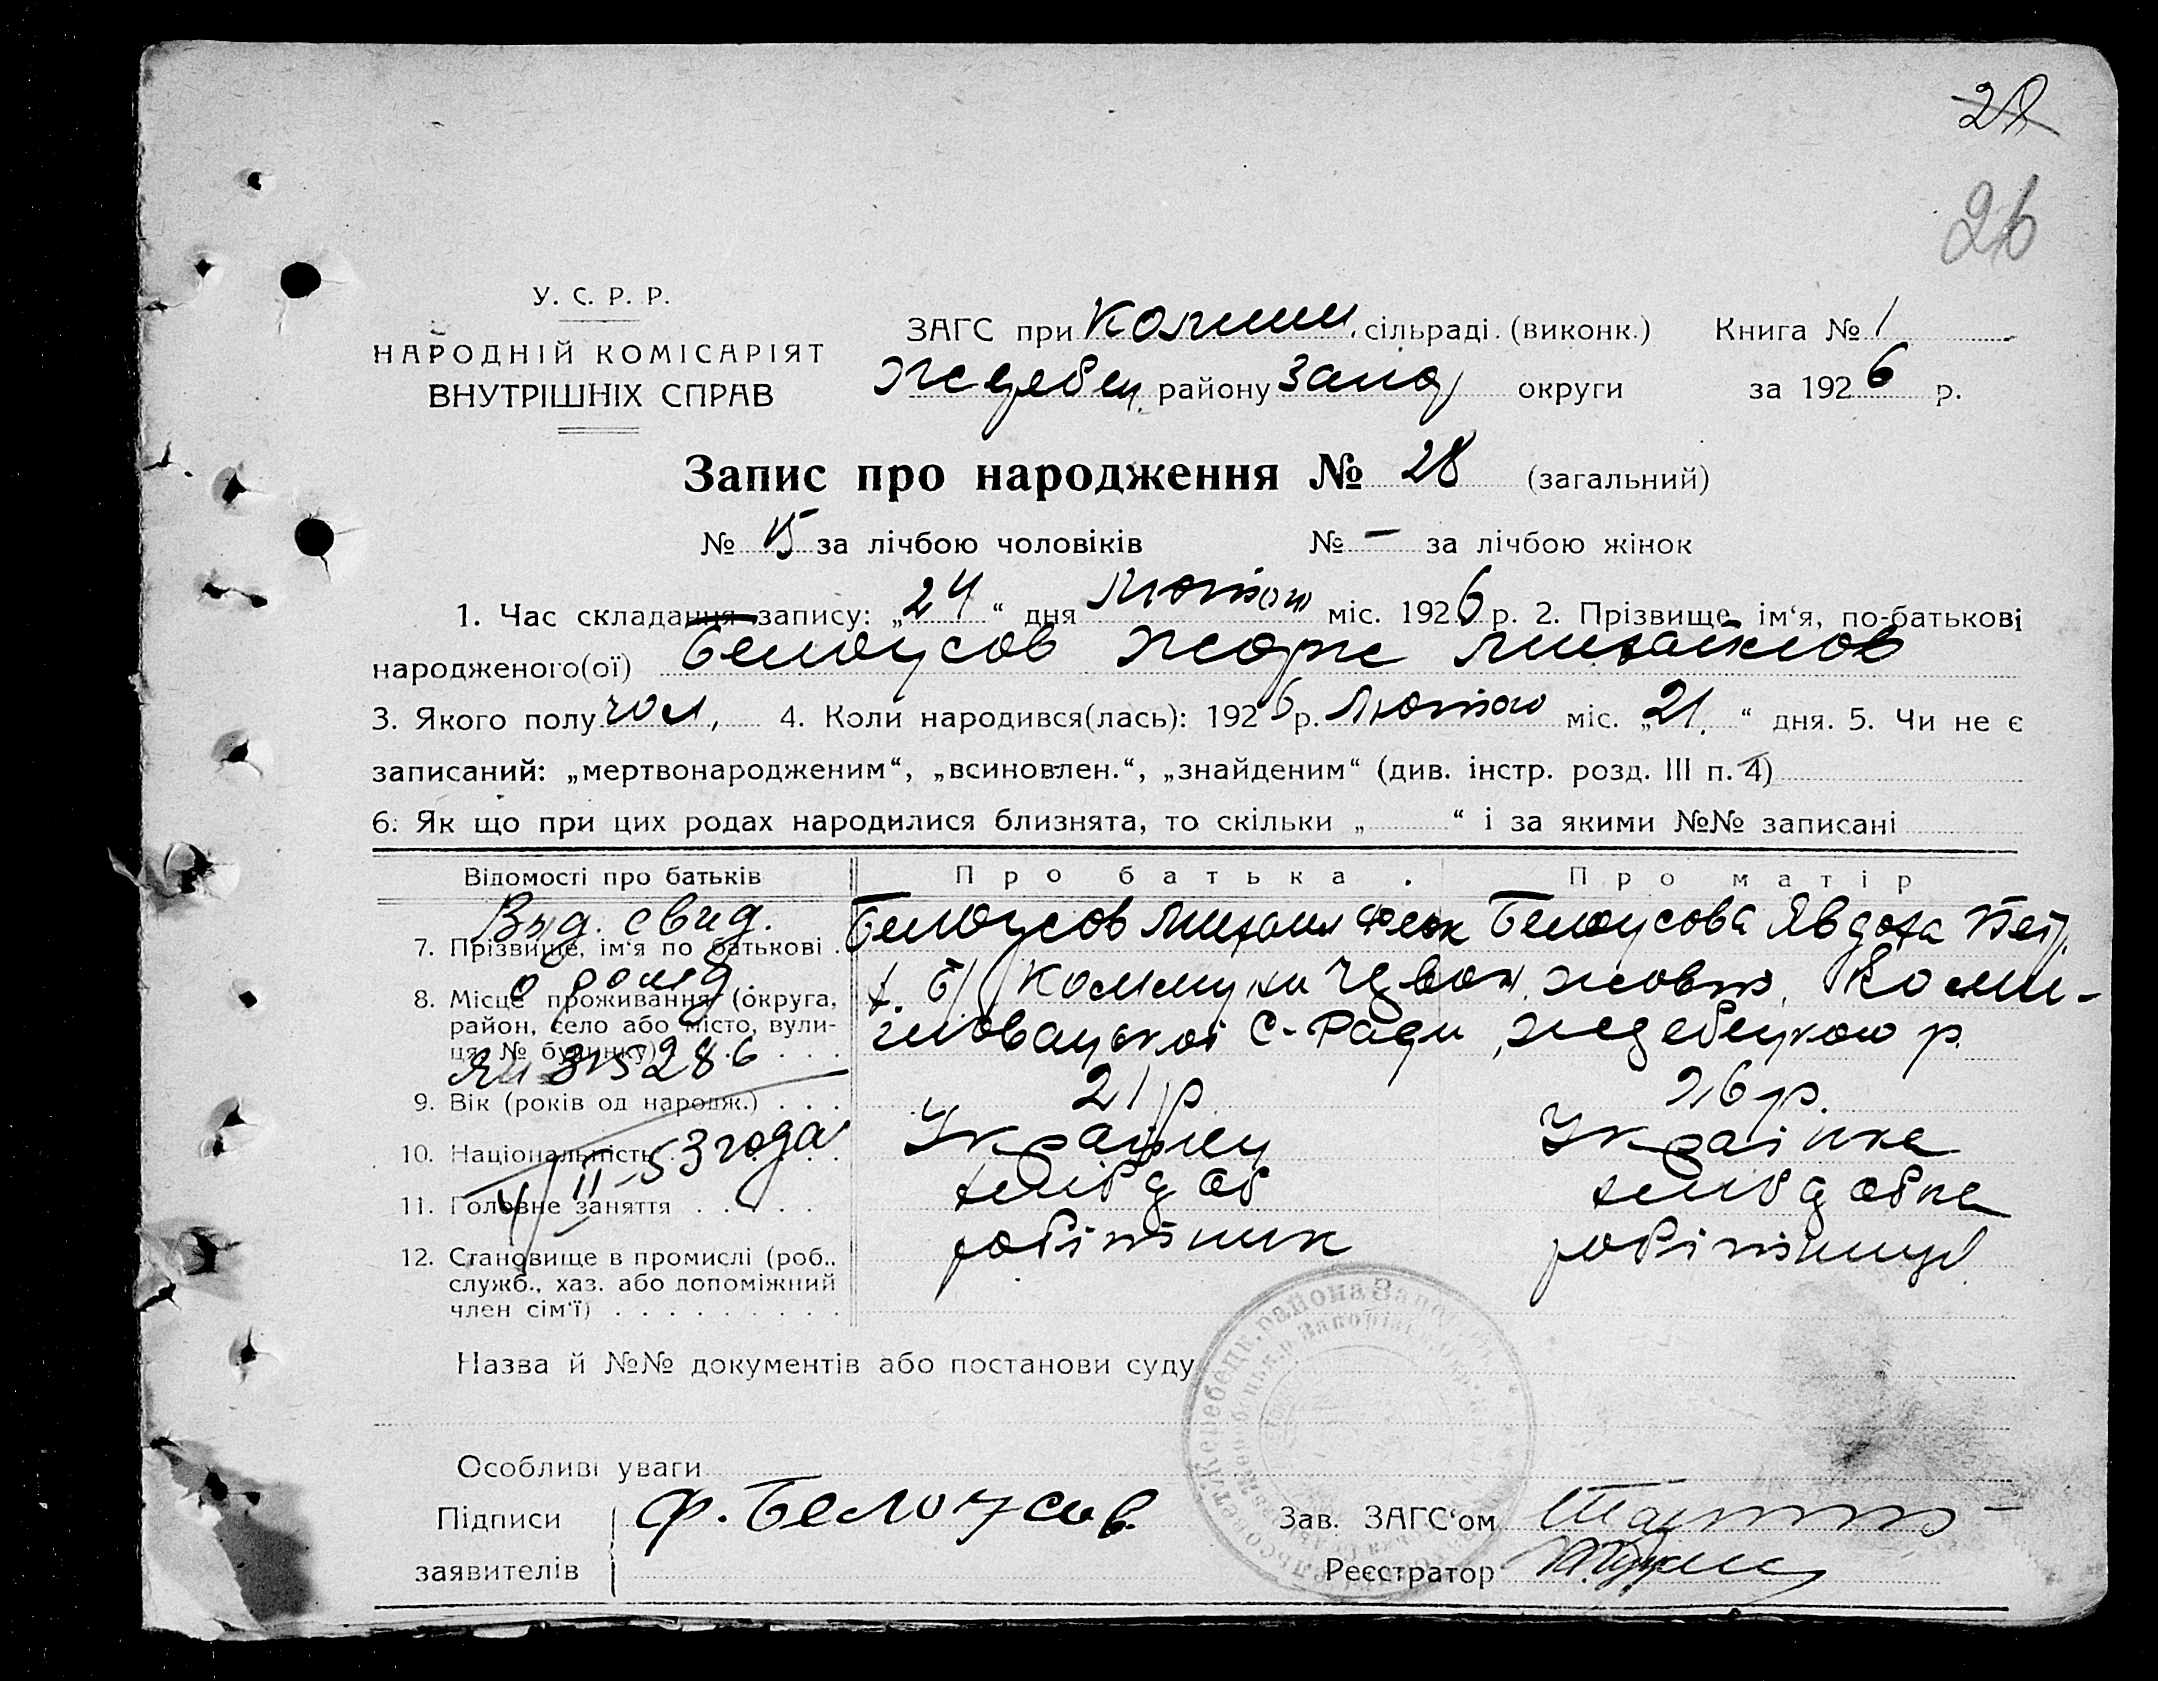 28
26
У. С. Р. Р.
НАРОДНІЙ КОМІСАРІЯТ
ВНУТРІШНІХ СПРАВ
ЗАГС при сільраді. (виконк.) Книга № 1
Жеребец. району Запор округи за 1926 р.
Запис про народження № 28 (загальний)
№ 15 за лічбою чоловіків № – за лічбою жінок
1. Час складання запису: „24“ дня Лютого міс. 1926 р. 2. Прізвище, ім‘я, по-батькові
народженого(ої) Белоусов Жорж Михайлов
3. Якого полу чол, 4. Коли народився(лась): 1926 р. Лютого міс. „21.“ дня. 5. Чи не є
записаний: „мертвонародженим“, „всиновлен.“, „знайденим“ (див. інстр. розд. III п. 4)
6. Як що при цих родах народилися близнята, то скільки „ “ і за якими №№ записані
Відомості про батьків Про батька. Про матір
Выд. свид.
7. Прізвище, ім‘я по батькові . Белоусов Михаил Белоусова Явдоха Петр.
о рожд.
8. Місце проживання (округа, район, село або місто, вули-ця, № будинку) . . . .
Комуни Червон. Жовт.
С-Ради, Жеребецкого р.
315286
9. Вік (років од народж.) . . . 21 р 26 р.
10. Національність . . . . Українец Українка
4/II-53 года
11. Головне заняття . . . . . хлібороб хліборобка
12. Становище в промислі (роб., служб., хаз. або допоміжний член сім‘ї) . . . . . . . . . робітник робітниця
Назва й №№ документів або постанови суду
Особливі уваги
Підписи
заявителів
Ф. Белоусов.
Зав. ЗАГС‘ом
Реєстратор